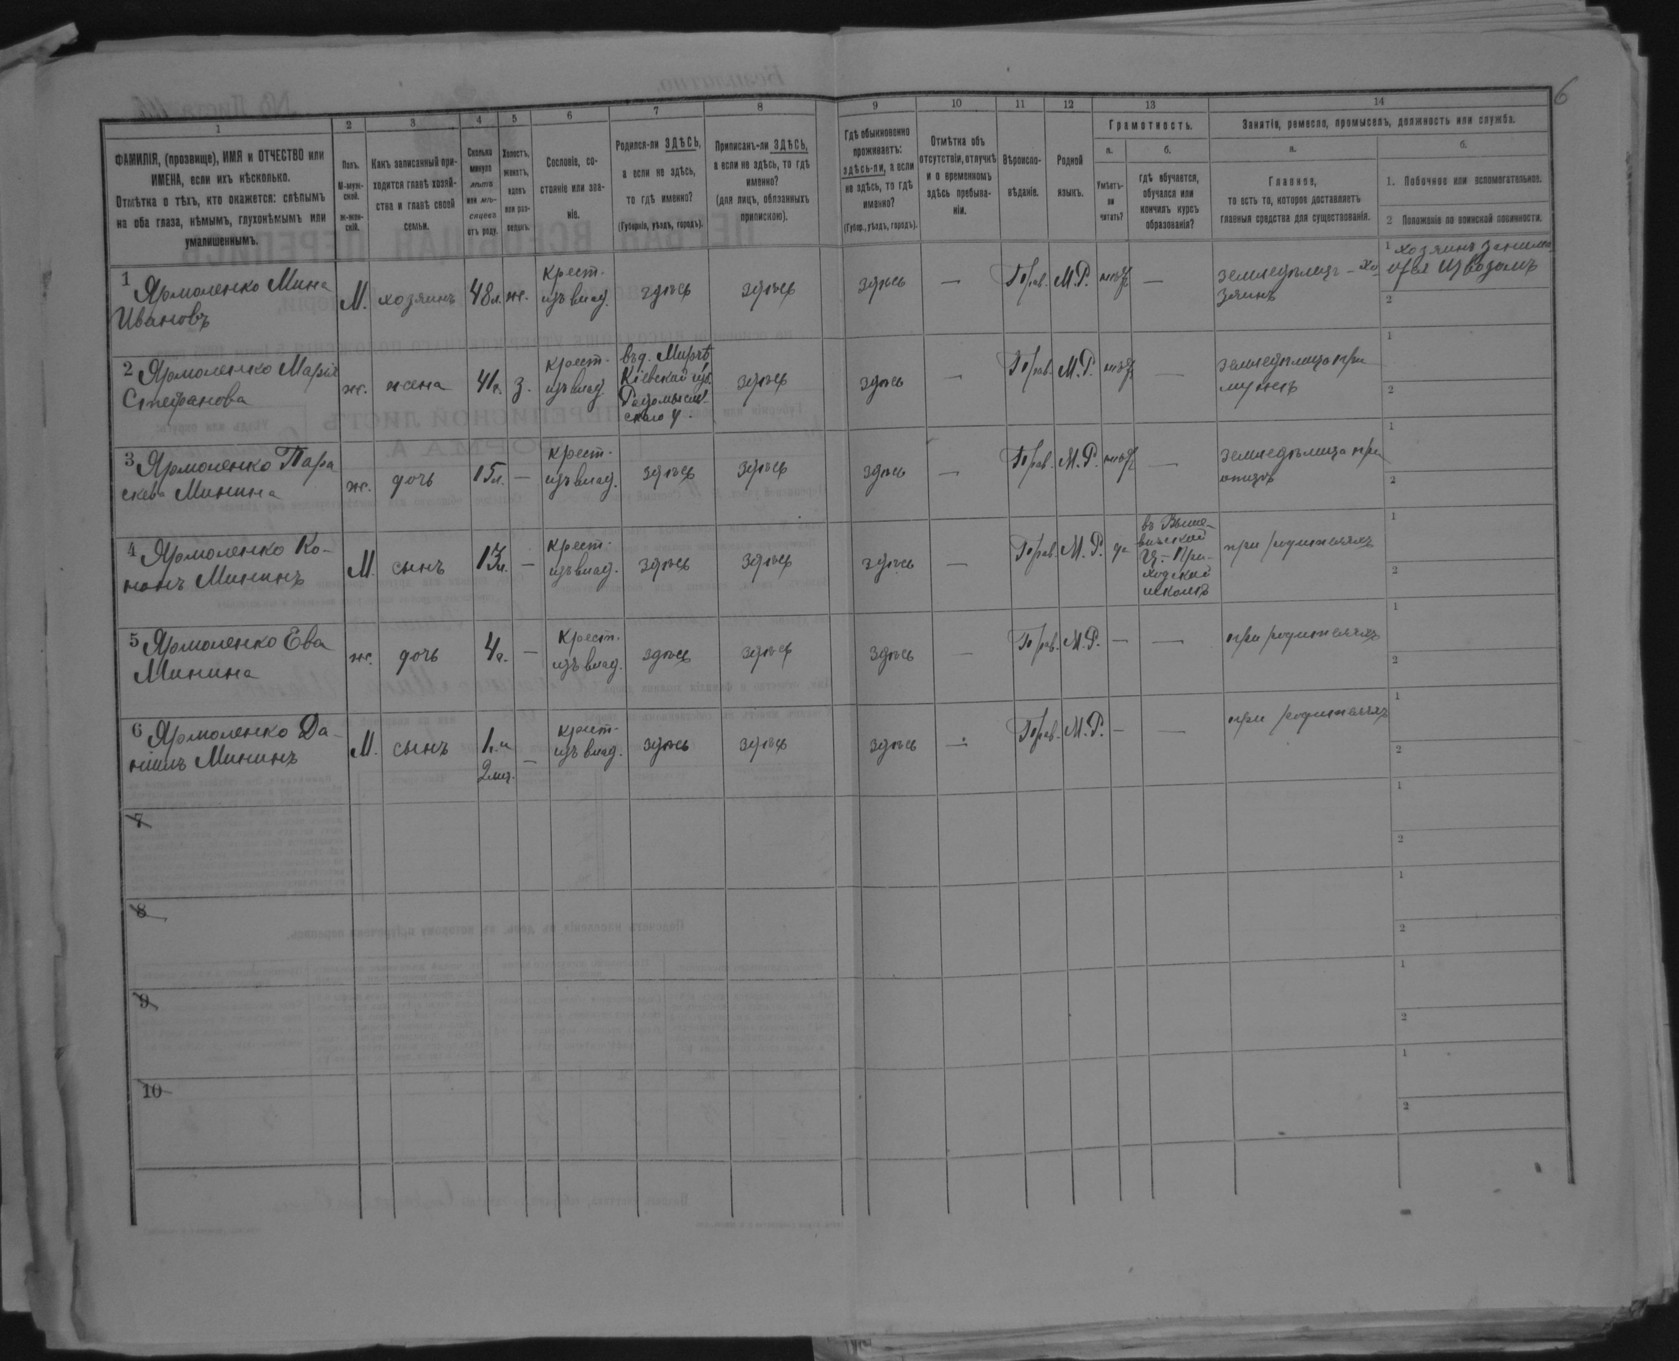 6
1
2
3
4
5
6
7
8
9
10
11
12
13
14
ФАМИЛІЯ, (прозвище), ИМЯ и ОТЧЕСТВО или
ИМЕНА, если ихъ нѣсколько.
Отмѣтка о тѣхъ, кто окажется: слѣпымъ
на оба глаза, нѣмымъ, глухонѣмымъ или
умалишеннымъ.
Полъ.
М-муж-
ской.
Ж-жен-
скій.
Какъ записанный при-
ходится главѣ хозяй-
ства и главѣ своей
семьи.
Сколько
минуло
лѣтъ
или мѣ-
сяцевъ
отъ роду.
Холостъ,
женатъ,
вдовъ
или раз-
веденъ.
Сословіе, со-
стояніе или зва-
ніе.
Родился-ли ЗДѢСЬ,
а если не здѣсь,
то гдѣ именно?
(Губернія, уѣздъ, городъ).
Приписанъ-ли ЗДѢСЬ,
а если не здѣсь, то гдѣ
именно?
(для лицъ, обязанныхъ
припискою).
Гдѣ обыкновенно
проживаетъ:
здѣсь-ли, а если
не здѣсь, то гдѣ
именно?
(Губер., уѣздъ, городъ).
Отмѣтка объ
отсутствіи, отлучкѣ
и о временномъ
здѣсь пребыва-
ніи.
Вѣроиспо-
вѣданіе.
Родной
языкъ.
Грамотность.
а.
Умѣетъ-
ли
читать?
б.
гдѣ обучается,
обучался или
кончилъ курсъ
образованія?
Занятія, ремесло, промыселъ, должность или служба.
а.
Главное,
то есть то, которое доставляетъ
главныя средства для существованія.
б.
1. Побочное или вспомогательное.
2 Положеніе по воинской повинности.
1 Ярмоленко Мина
Ивановъ
М.
хозяинъ
48 л.
ж.
крест.
изъ влад.
здѣсь
здѣсь
здѣсь
—
Прав.
М.Р.
нѣтъ
—
земледѣлецъ – хо-
зяинъ
1 хозяинъ занима-
ется извозомъ
2
2 Ярмоленко Марія
Стефанова
ж.
жена
41 г.
з.
крест.
изъ влад.
Кіевской губ.
Радомысль-
скаго у.
здѣсь
здѣсь
—
Прав.
М.Р.
нѣтъ
—
земледѣлица при
мужѣ
1
2
3 Ярмоленко Пара
скева Минина
ж.
дочь
15 л.
—
крест.
изъ влад.
здѣсь
здѣсь
здѣсь
—
Прав.
М.Р.
нѣтъ
—
земледѣлица при
отцѣ
1
2
4 Ярмоленко Ко-
нонъ Мининъ
М.
сынъ
13 л.
—
крест.
изъ влад.
здѣсь
здѣсь
здѣсь
—
Прав.
М.Р.
да
въ Выше-
вичской
Ц.-При-
ходской
школѣ
при родителяхъ
1
2
5 Ярмоленко Ева
Минина
ж.
дочь
4 г.
—
крест.
изъ влад.
здѣсь
здѣсь
здѣсь
—
Прав.
М.Р.
—
—
при родителяхъ
1
2
6 Ярмоленко Да-
ніилъ Мининъ
М.
сынъ
1 г. и
2 мѣс.
—
крест.
изъ влад.
здѣсь
здѣсь
здѣсь
—
Прав.
М.Р.
—
—
при родителяхъ
1
2
7
1
2
8
1
2
9
1
2
10
1
2